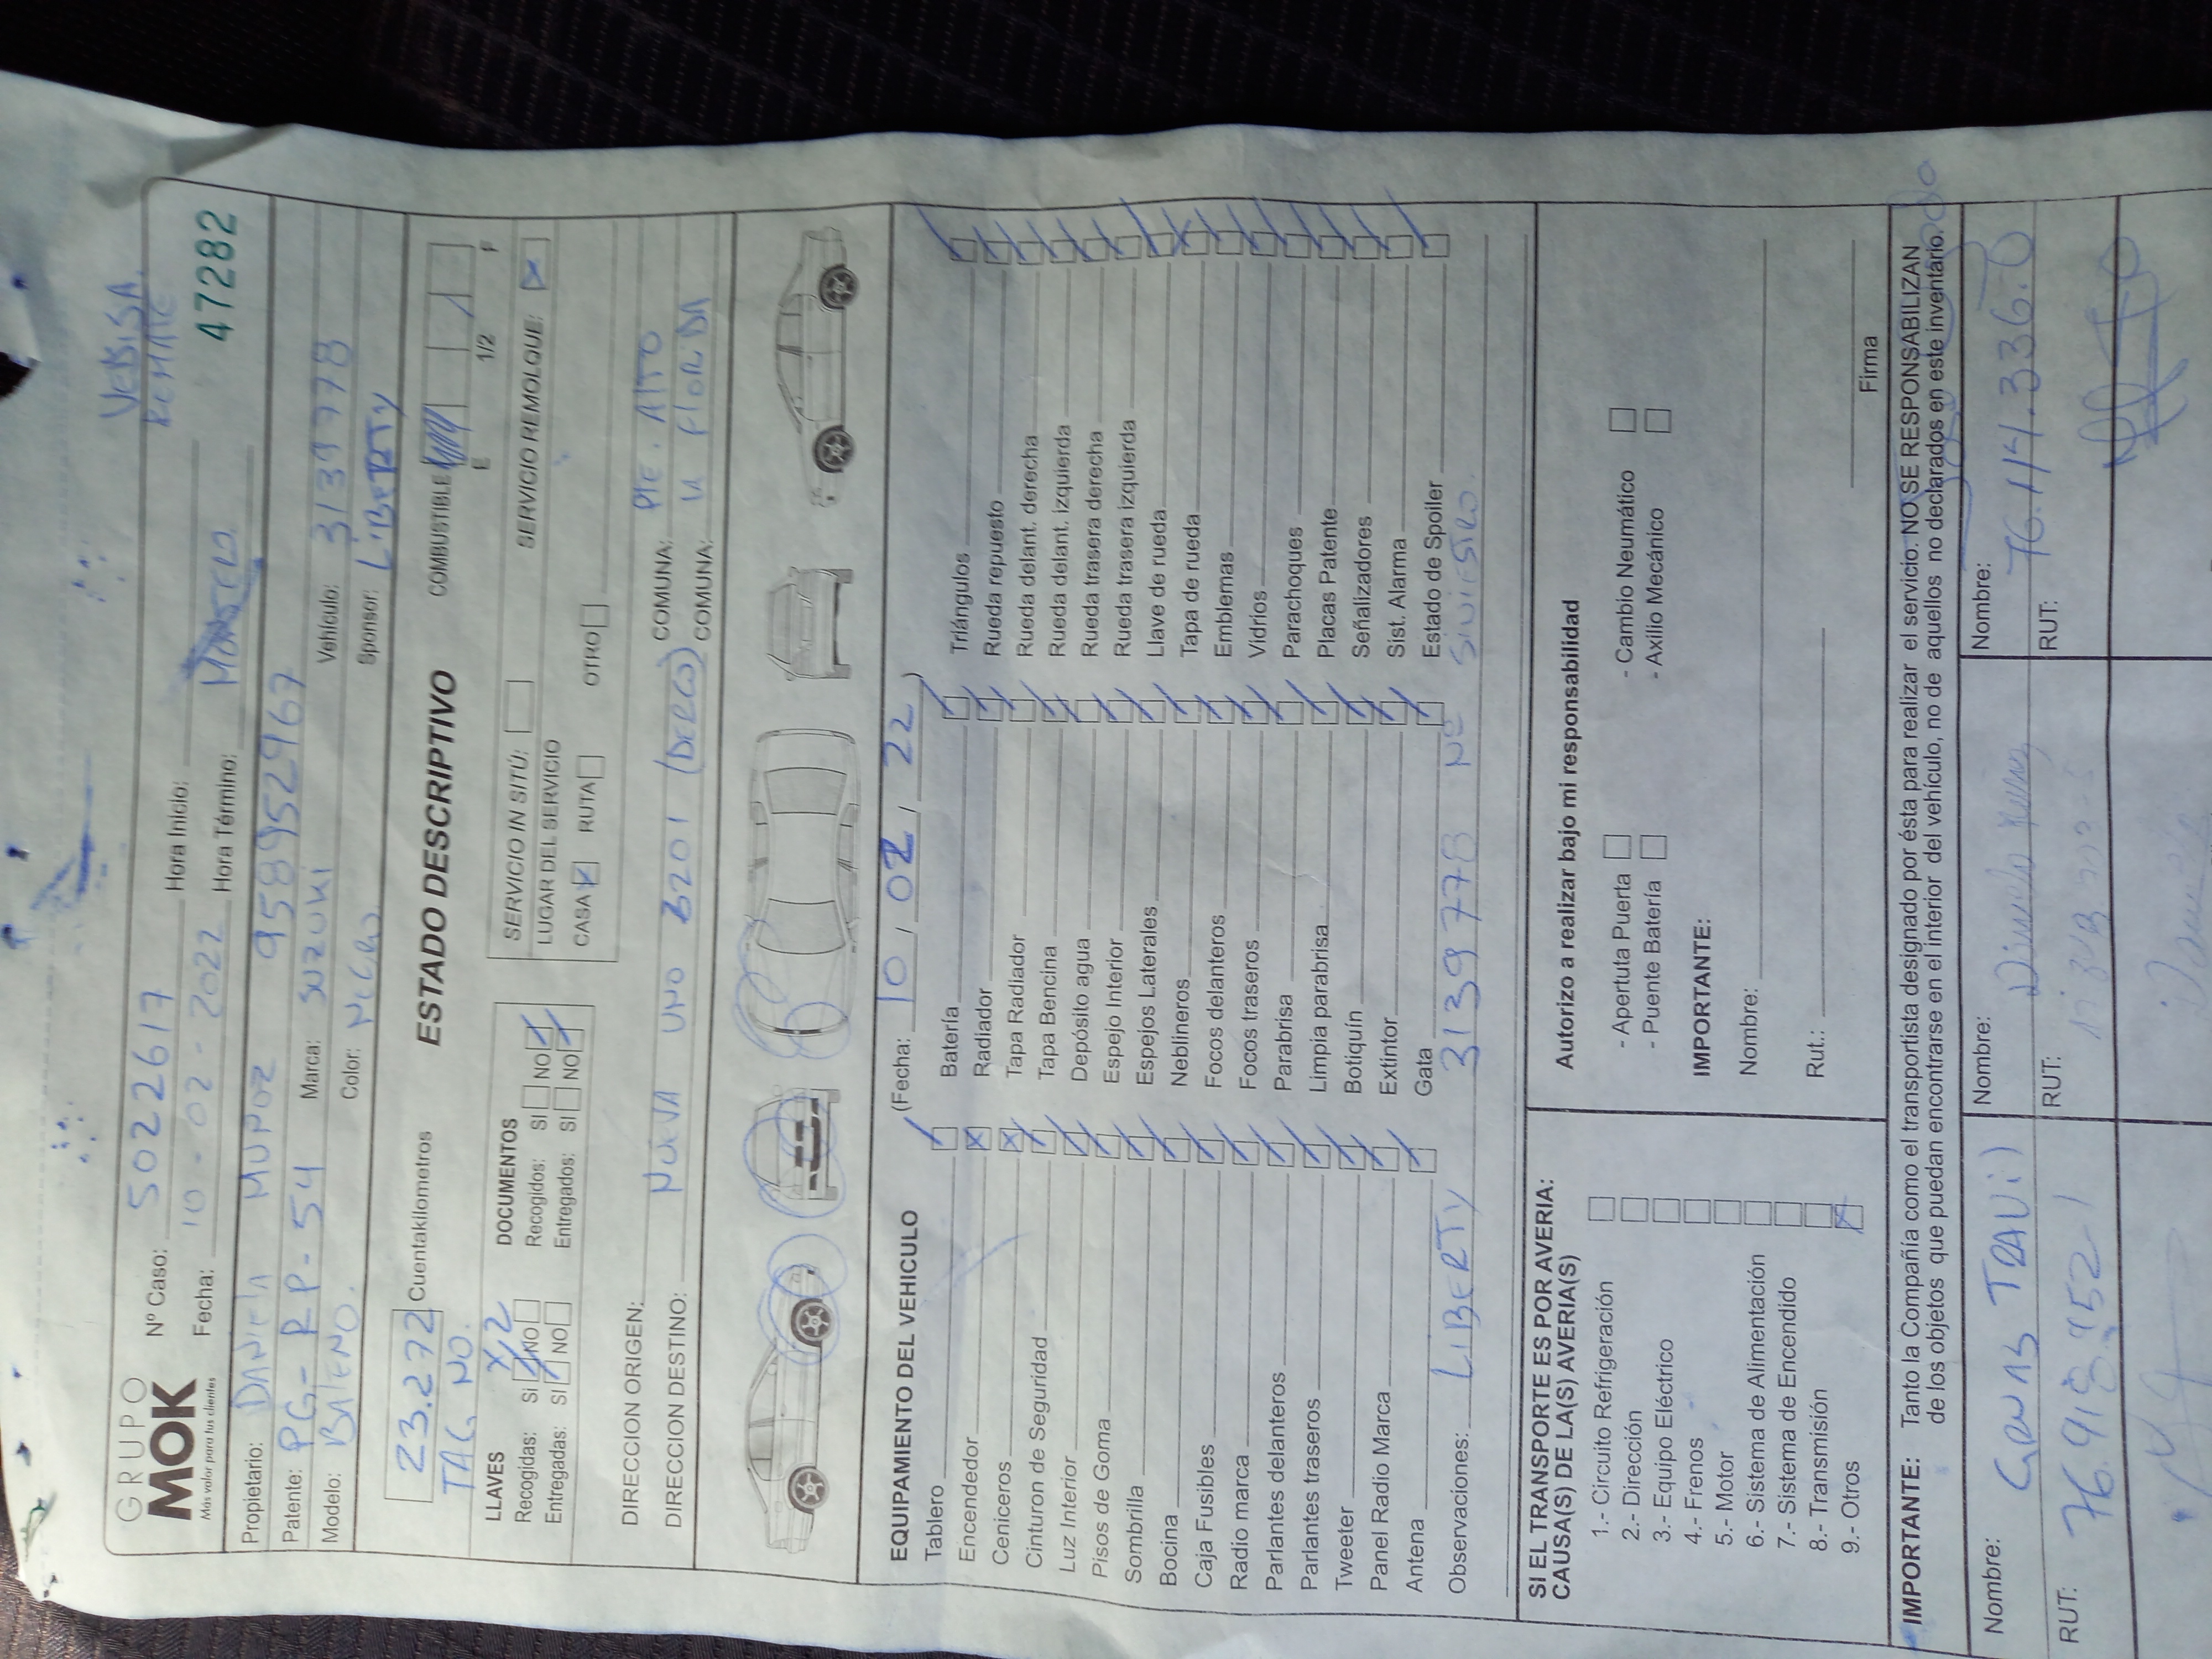 VEDISA
REMATE
GRUPO
MOK
Más valor para tus clientes
Nº Caso: 5022617 Hora Inicio:
47282
Fecha: 10-02-2022 Hora Término:
Propietario: DANIELA MUÑOZ 958952967
Patente: PG-RP-54 Marca: SUZUKI Vehículo: 3139778
Modelo: BALENO. Color: NEGRO. Sponsor: LIBERTY
23.272 Cuentakilometros ESTADO DESCRIPTIVO COMBUSTIBLE E 1/2 F
TAG NO.
LLAVES X2 DOCUMENTOS SERVICIO IN SITÚ: SERVICIO REMOLQUE:
Recogidas: Si NO Recogidos: SI NO LUGAR DEL SERVICIO
Entregadas: SI NO Entregados: SI NO CASA RUTA OTRO
DIRECCION ORIGEN: COMUNA: PTE. ALTO
DIRECCION DESTINO: NUEVA UNO 6201 (DERCO) COMUNA: LA FLORIDA
EQUIPAMIENTO DEL VEHICULO (Fecha: 10, 02, 22)
Tablero Batería Triángulos
Encendedor Radiador Rueda repuesto
Ceniceros Tapa Radiador Rueda delant. derecha
Cinturon de Seguridad Tapa Bencina Rueda delant. izquierda
Luz Interior Depósito agua Rueda trasera derecha
Pisos de Goma Espejo Interior Rueda trasera izquierda
Sombrilla Espejos Laterales Llave de rueda
Bocina Neblineros Tapa de rueda
Caja Fusibles Focos delanteros Emblemas
Radio marca Focos traseros Vidrios
Parlantes delanteros Parabrisa Parachoques
Parlantes traseros Limpia parabrisa Placas Patente
Tweeter Botiquín Señalizadores
Panel Radio Marca Extintor Sist. Alarma
Antena Gata Estado de Spoiler
Observaciones: LIBERTY 3139778 Nº SINIESTRO.
SI EL TRANSPORTE ES POR AVERIA:
CAUSA(S) DE LA(S) AVERIA(S)
1.- Circuito Refrigeración
2.- Dirección
3.- Equipo Eléctrico
4.- Frenos
5.- Motor
6.- Sistema de Alimentación
7.- Sistema de Encendido
8.- Transmisión
9.- Otros
Autorizo a realizar bajo mi responsabilidad
- Apertuta Puerta - Cambio Neumático
- Puente Batería - Axilio Mecánico
IMPORTANTE:
Nombre:
Rut.:
Firma
IMPORTANTE: Tanto la Compañía como el transportista designado por ésta para realizar el servicio. NO SE RESPONSABILIZAN
de los objetos que puedan encontrarse en el interior del vehículo, no de aquellos no declarados en este inventario.
Nombre: GRUAS TRAVI Nombre: Nombre:
RUT: 76.918.952-1 RUT: RUT: 76.114.336.0